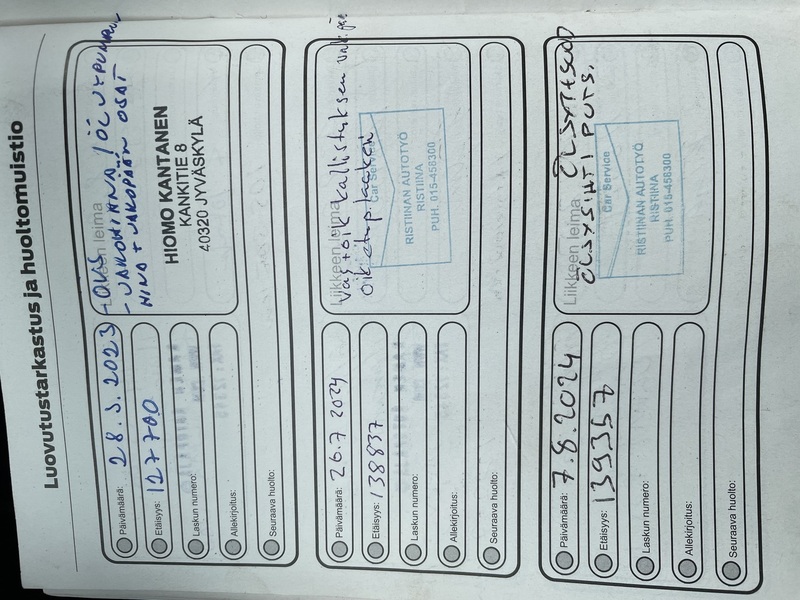 Luovutustarkastus ja huoltomuistio
Päivämäärä: 28.3.2023
Etäisyys: 127700
Laskun numero:
Allekirjoitus:
Seuraava huolto:
Liikkeen leima
- JAKOHIHNA / ÖLJYPUMPUN
HIHNA + JAKOPÄÄN OSAT
HIOMO KANTANEN
KANKITIE 8
40320 JYVÄSKYLÄ
Päivämäärä: 26.7 2024
Etäisyys: 138837
Laskun numero:
Allekirjoitus:
Seuraava huolto:
Liikkeen leima
Vas + oik kallistuksen
oik
Car Service
RISTIINAN AUTOTYÖ
RISTIINA
PUH. 015-456300
Päivämäärä: 7.8.2024
Etäisyys: 139357
Laskun numero:
Allekirjoitus:
Seuraava huolto:
Liikkeen leima
Car Service
RISTIINAN AUTOTYÖ
RISTIINA
PUH. 015-456300